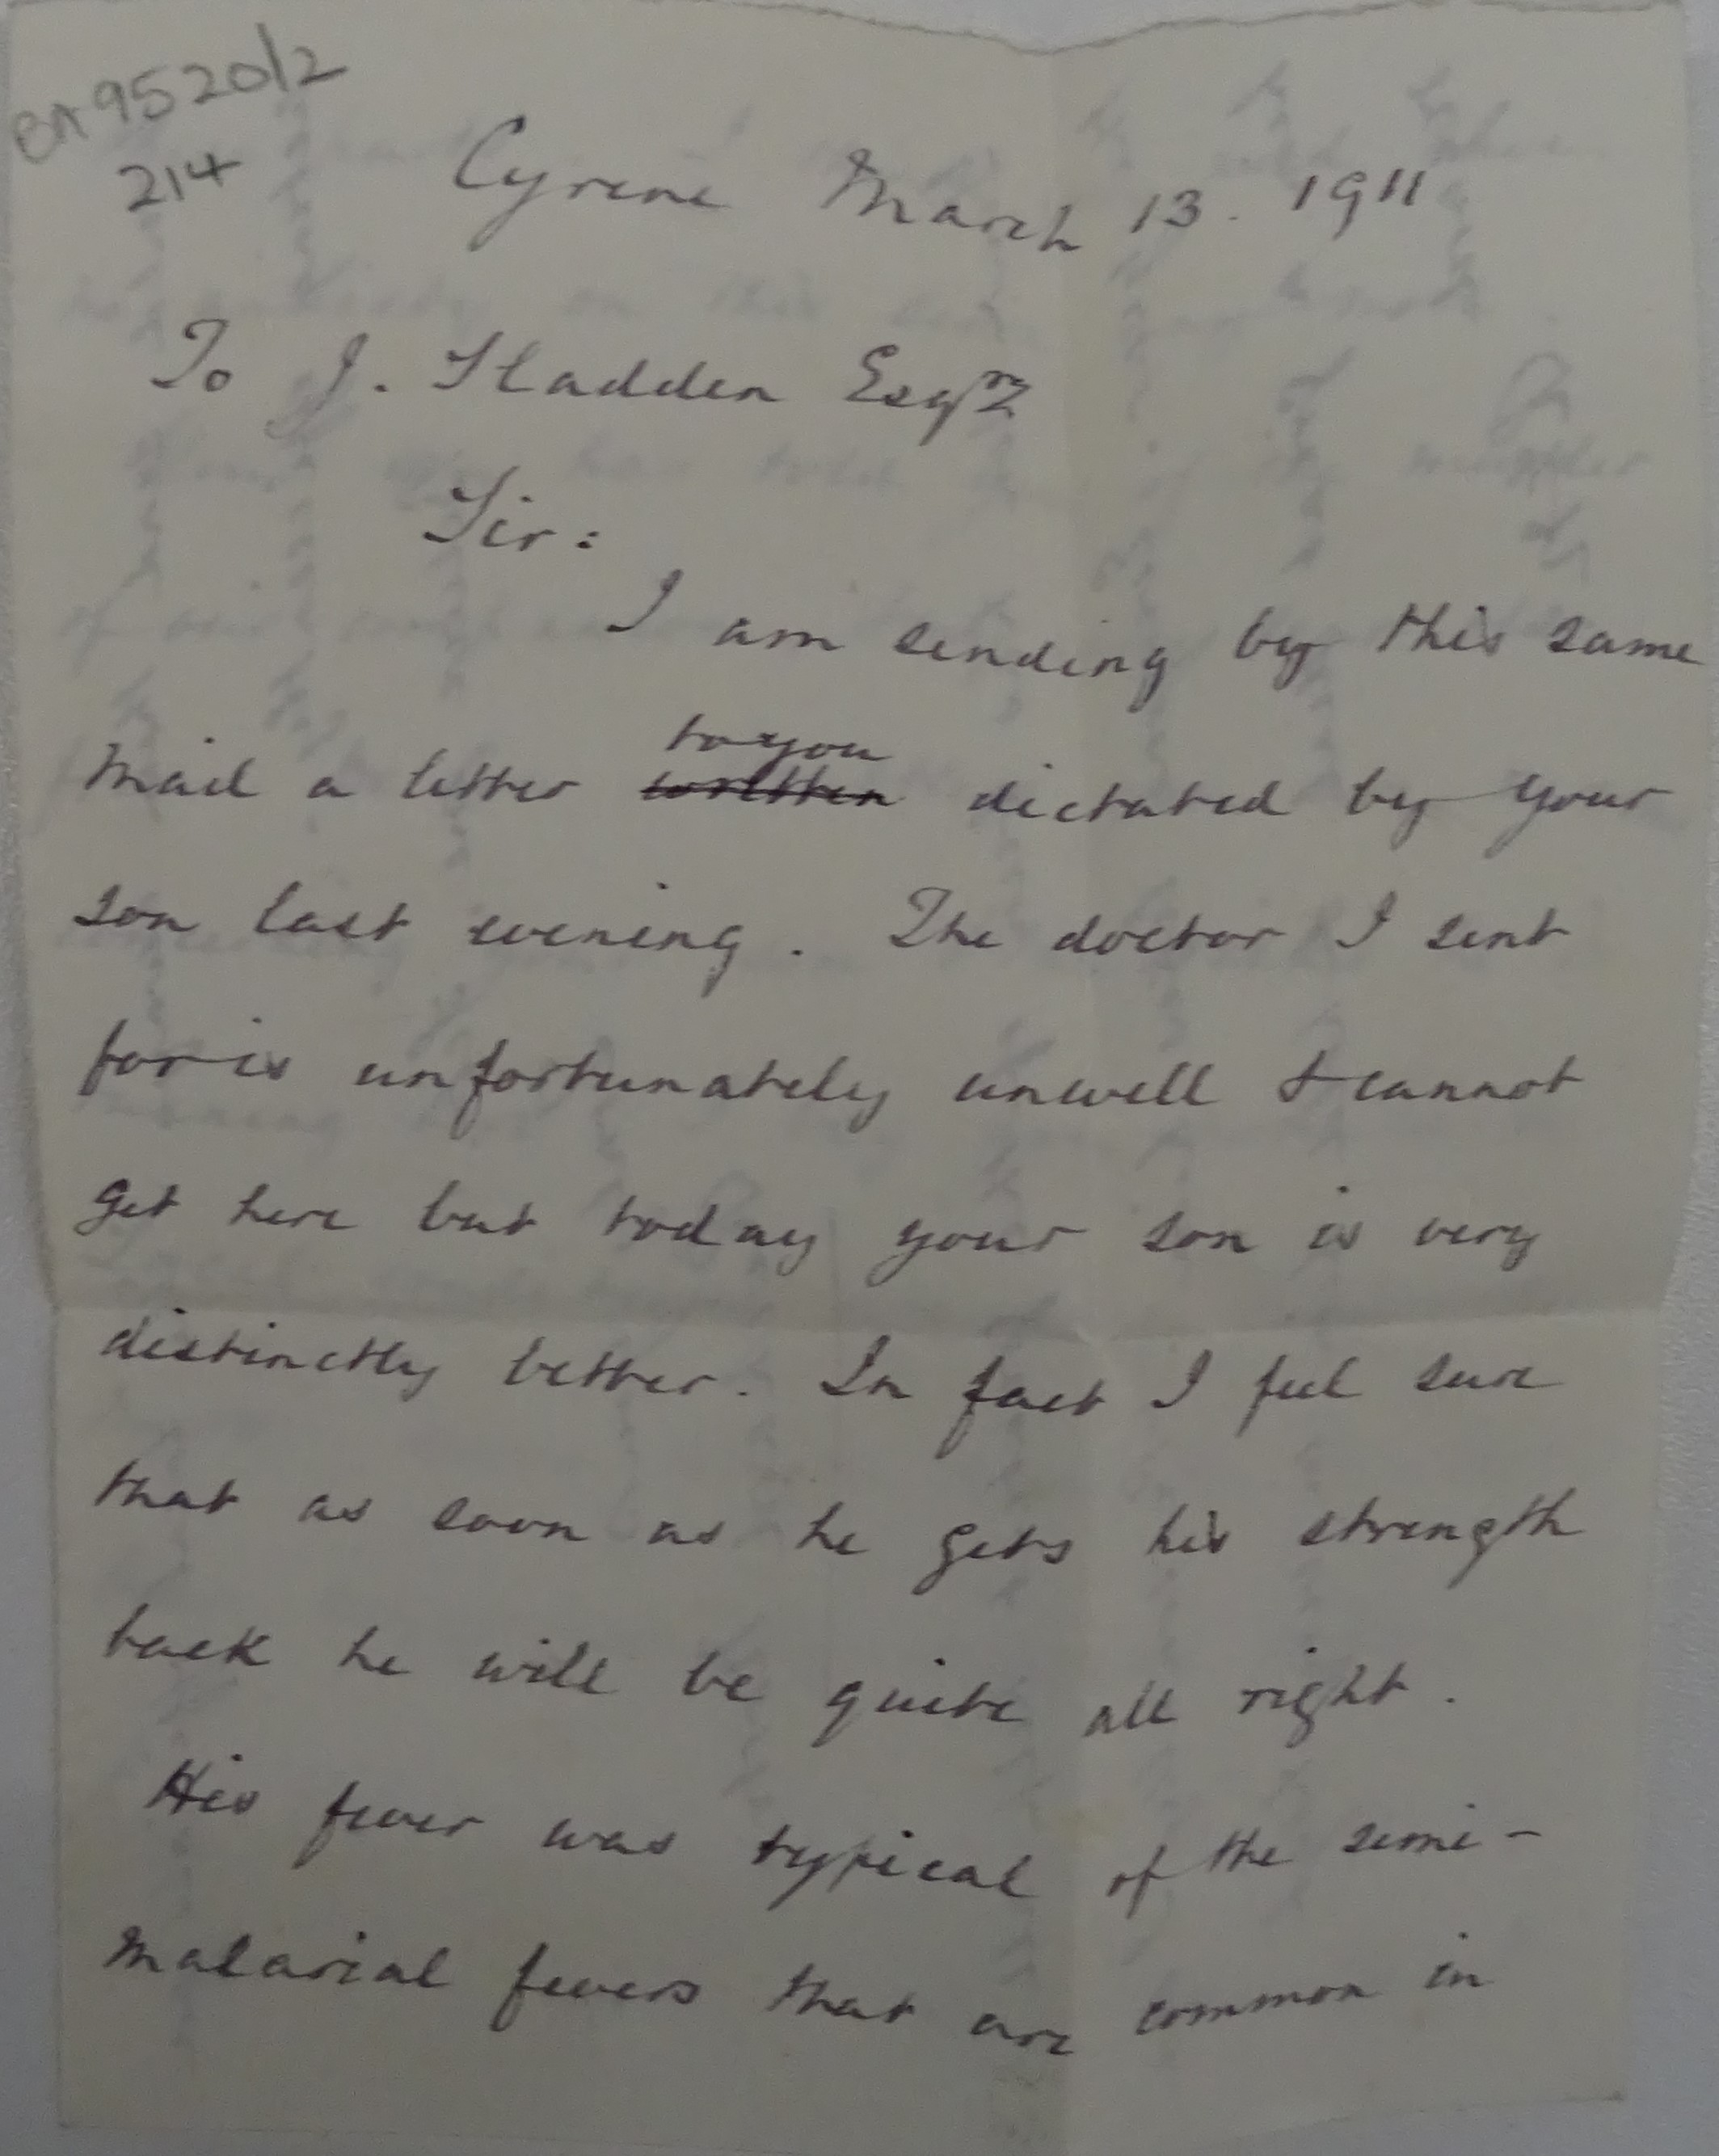 BA 9520/2
214
Cyrene March 13. 1911
To J. Sladden Esqre
Sir:
I am sending by this same
mail a letter ~~written~~ to you dictated by your
son last evening. The doctor I sent
for is unfortunately unwell & cannot
get here but today your son is very
distinctly better. In fact I feel sure
that as soon as he gets his strength
back he will be quite all right.
His fever was typical of the semi-
malarial fevers that are common in